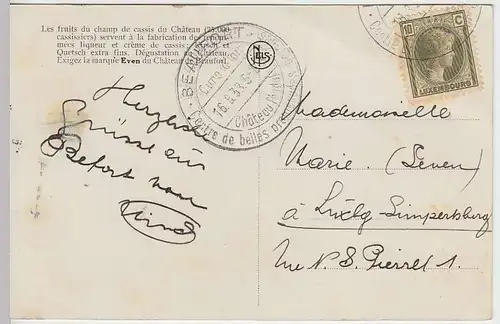 Les fruits du champ de cassis du Château (25.000
cassissiers) servent à la fabrication de renom-
mées liqueur et crème de cassis; Kirsch et
Quetsch extra fins. Dégustation au Château.
Exigez la marque Even du Château de Beaufort.
BEAUFORT
Camp
16.8.33.5
Château
Centre de belles
NELS
10 C
LUXEMBOURG
Herzliche
Grüsse aus
Befort von
Mademoiselle
Marie
à Luxbg-Limpertsberg
rue N. S. Pierret 1.